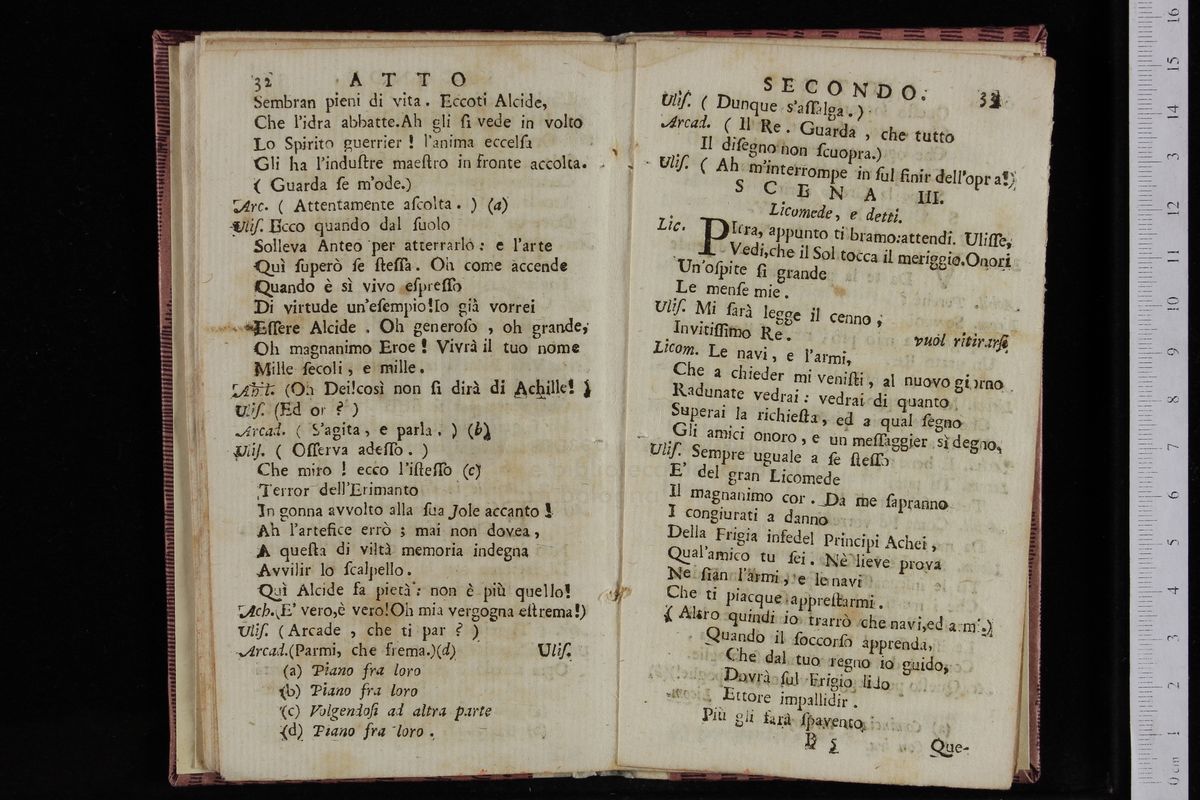 32 ATTO
Sembran pieni di vita. Eccoti Alcide,
Che l'idra abbatte.Ah gli ſi vede in volto
Lo Spirito guerrier! l'anima eccelſa
Gli ha l'induſtre maeſtro in fronte accolta.
( Guarda ſe m'ode.)
Arc. ( Attentamente aſcolta. ) (a)
Uliſ. Ecco quando dal ſuolo
Solleva Anteo per atterrarlo: e l'arte
Quì ſuperò ſe ſteſſa. Oh come accende
Quando è sì vivo eſpreſſo
Di virtude un'eſempio!Io già vorrei
Eſſere Alcide. Oh generoſo, oh grande,
Oh magnanimo Eroe! Vivrà il tuo nome
Mille ſecoli, e mille.
(Oh Dei!così non ſi dirà di Achille! )
Uliſ. (Ed or? )
Arcad. ( S'agita, e parla. ) (b)
Uliſ. ( Oſſerva adeſſo. )
Che miro! ecco l'iſteſſo (c)
Terror dell'Erimanto
In gonna avvolto alla ſua Jole accanto!
Ah l'artefice errò; mai non dovea,
A queſta di viltà memoria indegna
Avvilir lo ſcalpello.
Quì Alcide fa pietà: non è più quello!
Ach.(E' vero,è vero!Oh mia vergogna eſtrema!)
Uliſ. (Arcade, che ti par? )
Arcad.(Parmi, che frema.)(d) Uliſ.
(a) Piano fra loro
(b) Piano fra loro
(c) Volgendoſi ad altra parte
(d) Piano fra loro.
SECONDO. 33
Uliſ. ( Dunque s'aſſalga. )
Arcad. ( Il Re. Guarda, che tutto
Il diſegno non ſcuopra.)
Uliſ. ( Ah m'interrompe in ſul finir dell'opra!)
SCENA III.
Licomede, e detti.
Lic. PIrra, appunto ti bramo:attendi. Uliſſe,
Vedi,che il Sol tocca il meriggio.Onori
Un'oſpite ſi grande
Le menſe mie.
Uliſ. Mi ſarà legge il cenno,
Invitiſſimo Re. vuol ritirarſi
Licom. Le navi, e l'armi,
Che a chieder mi veniſti, al nuovo giorno
Radunate vedrai: vedrai di quanto
Superai la richieſta, ed a qual ſegno
Gli amici onoro, e un meſſaggier sì degno.
Uliſ. Sempre uguale a ſe ſteſſo
E' del gran Licomede
Il magnanimo cor. Da me ſapranno
I congiurati a danno
Della Frigia infedel Principi Achei,
Qual'amico tu ſei. Nè lieve prova
Ne ſian l'armi, e le navi
Che ti piacque appreſtarmi.
( Altro quindi io trarrò che navi,ed armi.)
Quando il ſoccorſo apprenda,
Che dal tuo regno io guido,
Dovrà ſul Frigio lido
Ettore impallidir.
Più gli farà ſpavento
B 5 Que-